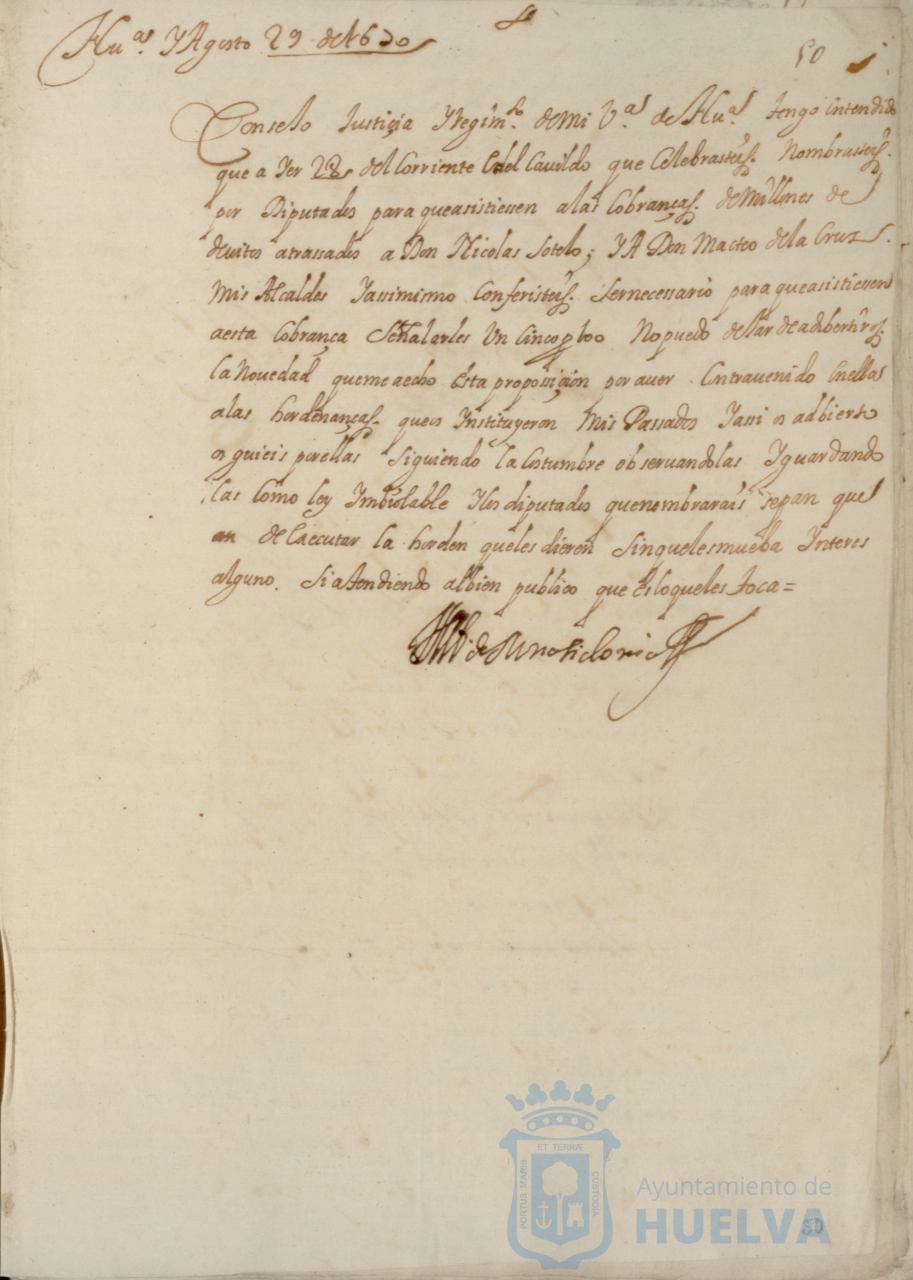 Huᵃˢ. Y Agosto 29 de 1630
50
Consejo Justiçia Yregimᵗᵒ. de Mi Vᵃˡ de Huᵃˢ. tengo entendido
que a Yer 28 del Corriente En el Cavildo que Celebrasteis. Nombrasteis.
por Diputados para que asistiesen a las Cobranças. de Millones de
devitos atrassados a Don Nicolas Sotelo; Y A Don Mateo de la Cruz.
Mis Alcaldes Yassimismo Conferisteis. Ser necessario para que asistiessen
a esta Cobrança Señalarles Un Cinco p 100 No puedo dejar de adbertiros.
la Novedad que me a echo Esta proposiçion por aver Contravenido En ellas
a las hordenanças. que os Ynstituyeron Mis Passados Yassi os adbierto
os guieis por ellas Siguiendo la Costumbre observandolas Yguardando
las Como ley Ymbiolable Ylos diputados que nombrarais sepan que
an de Executar la horden que les dieren Sin que les mueba Ynteres
alguno. Si atendiendo al bien publico que Es lo que les toca=
EL
PORTUS MARIS
ET TERRÆ
CUSTODIA
Ayuntamiento de
HUELVA
50